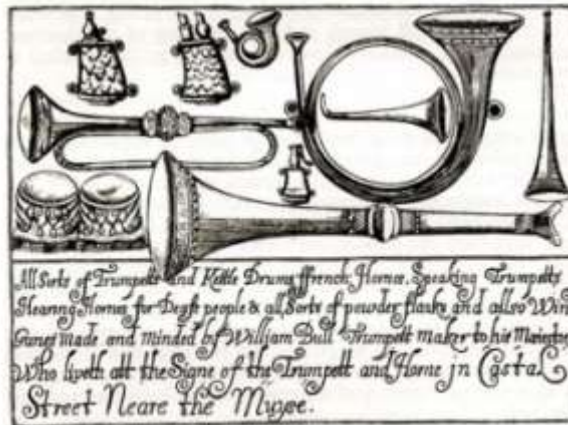 All Sorts of Trumpetts and Kettle Drums ffrench Hornes. Speaking Trumpetts
Hearing Hornes for Deafe people & all Sorts of powder flasks and allso Wind
Gunes made and minded by William Bull Trumpett maker to his Maiestie
Who liveth att the Signe of the Trumpett and Horne jn Castal
Street Neare the Muse.